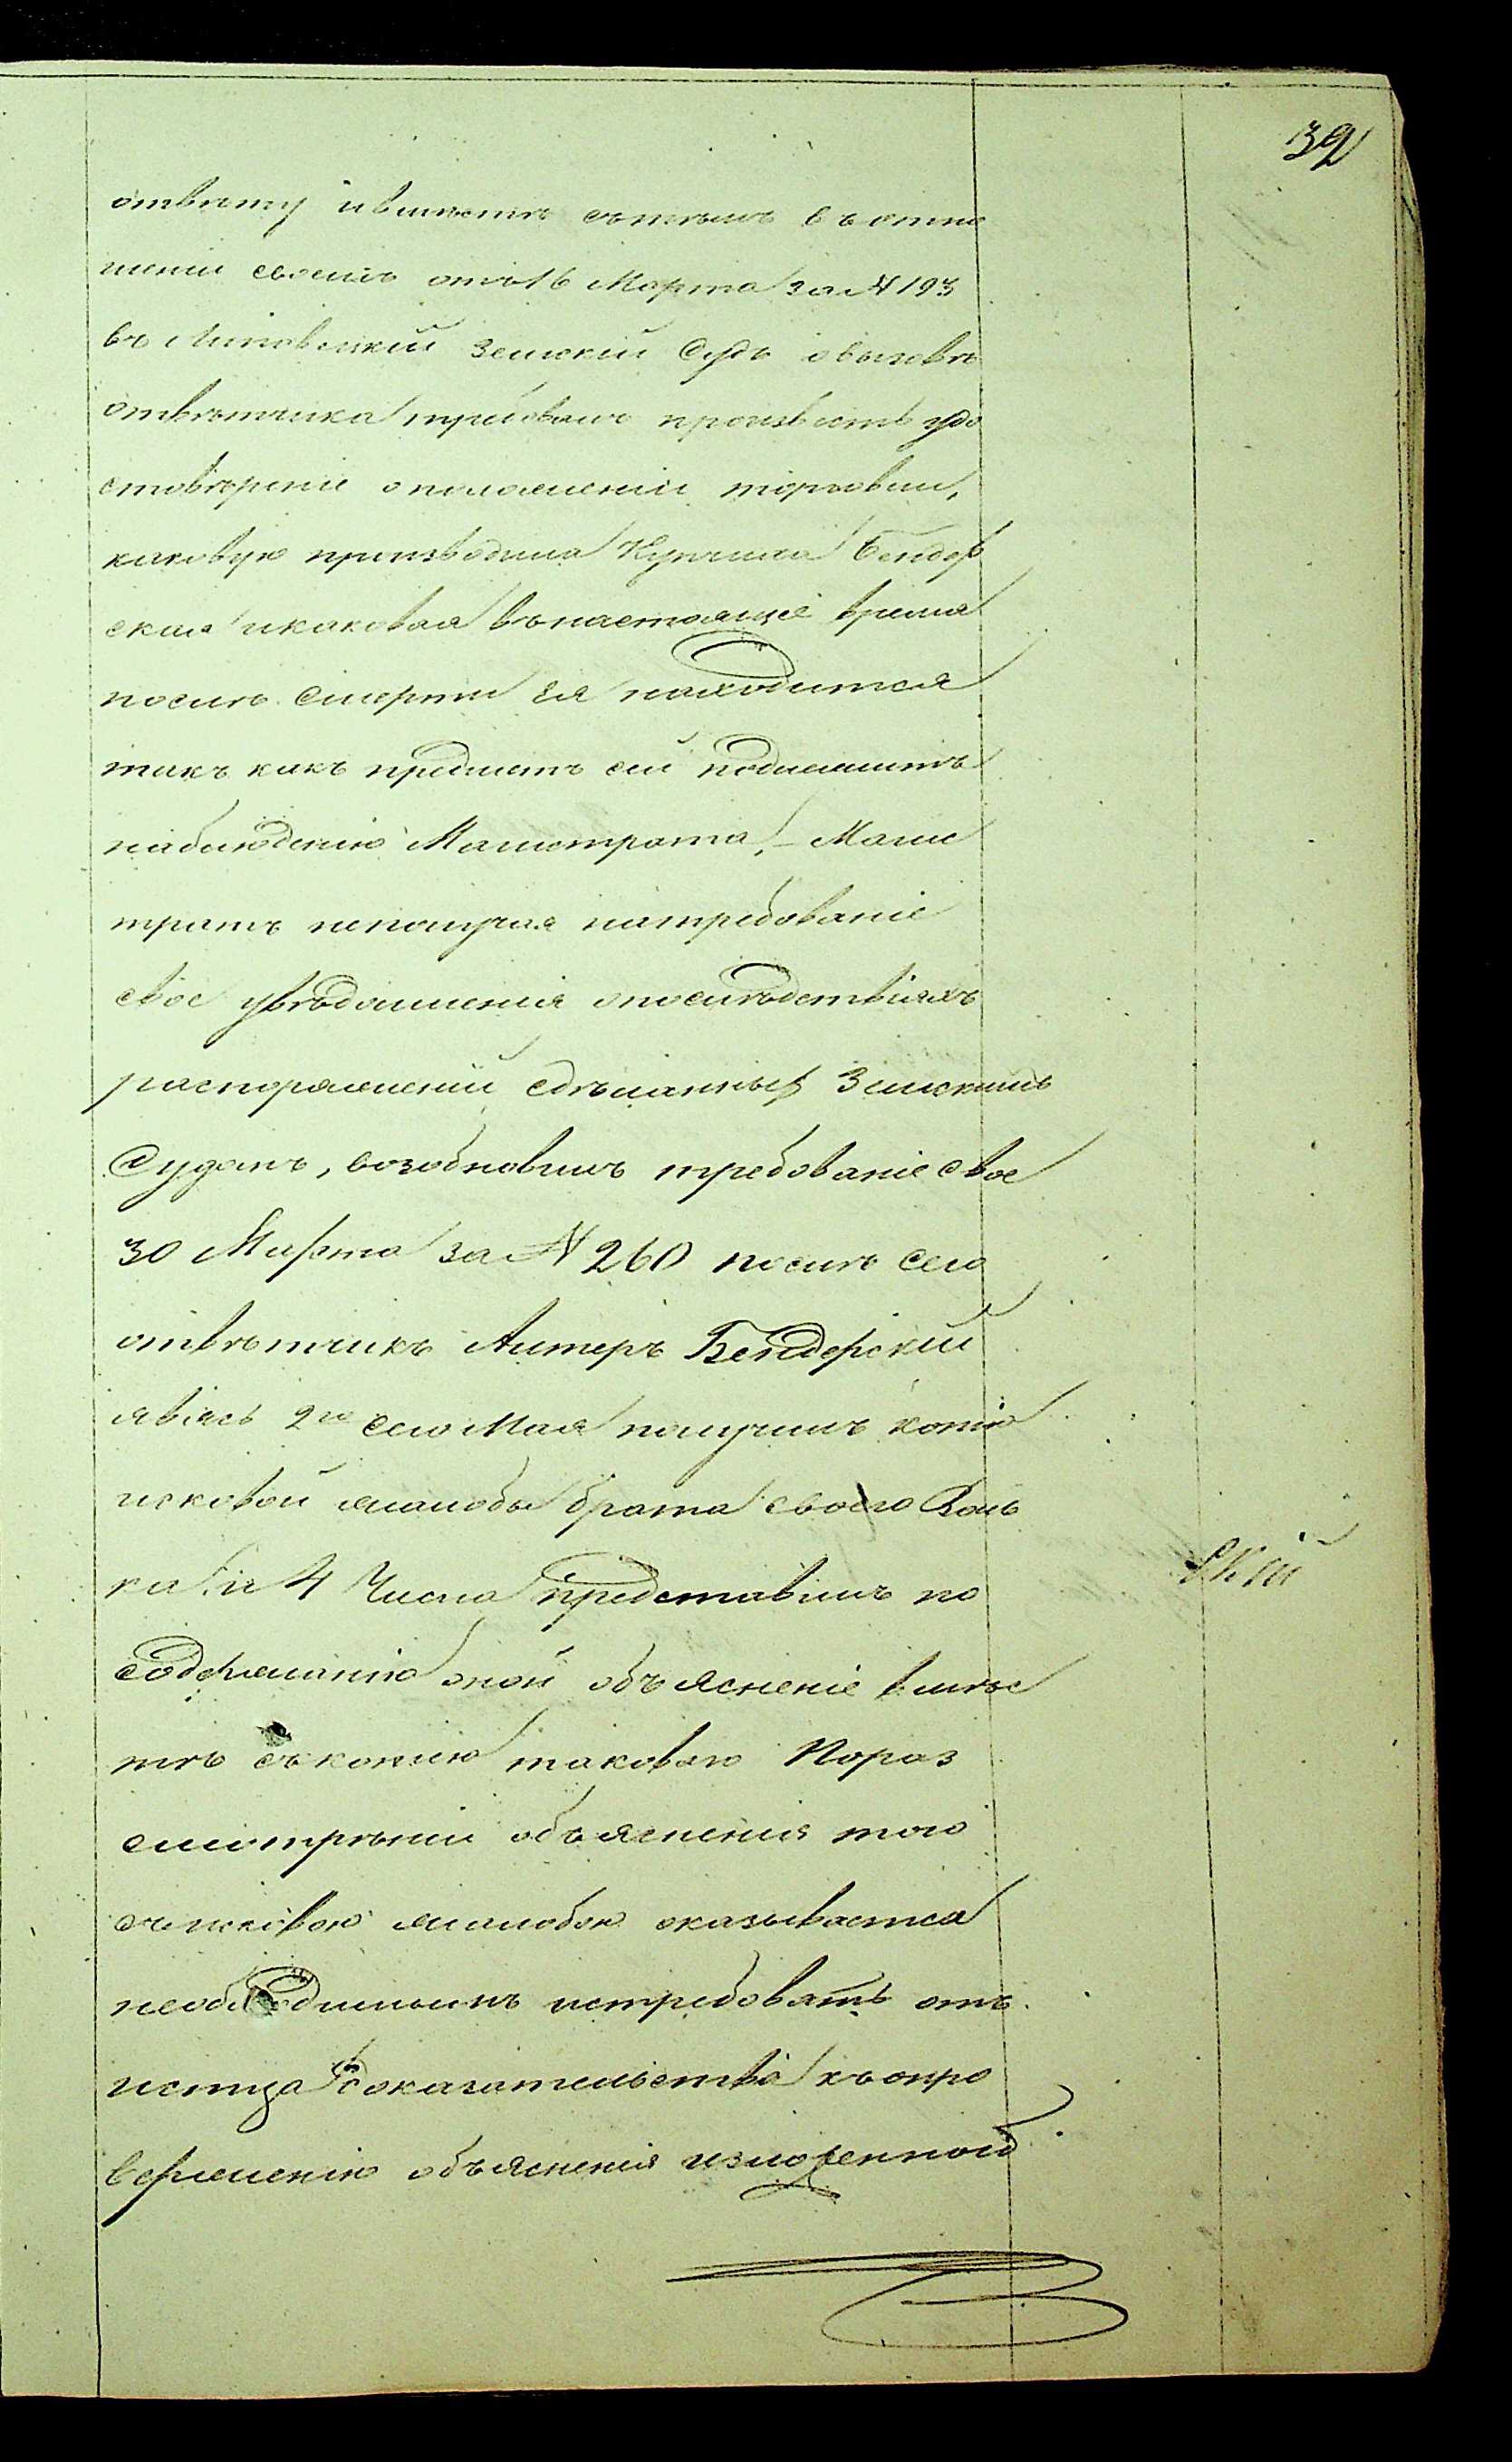 32
отвѣту и вместѣ съ тѣмъ въ отно
шеніи своемъ отъ 16 Марта за N 193
въ Липовецкій Земскій Судъ о вызовѣ
отвѣтчика требовалъ произвесть удо
стовѣреніе о положеніи торговли,
каковую производила Купчиха Бендер
ская и каковая въ настоящее время
послѣ смерти ея находится
такъ какъ предметъ сей подлежитъ
наблюденію Магистрата, – Магис
тратъ неполучая на требованіе
свое увѣдомленія о послѣдствіяхъ
распоряженій сдѣланныхъ Земскимъ
Судомъ, возобновилъ требованіе свое
30 Марта за N 260 послѣ сего
отвѣтчикъ Бендерскій
явясь 2го сего Мая получилъ копію
исковой жалобы брата своего Воль
ка и 4 Числа представилъ по
содержанію оной объясненіе вмѣс
тѣ съ копіею таковаго По раз
смотрѣніи объясненія того
съ исковою жалобою оказывается
необходимымъ истребовать отъ
истца доказательства къ опро
верженію объясненія изложенной